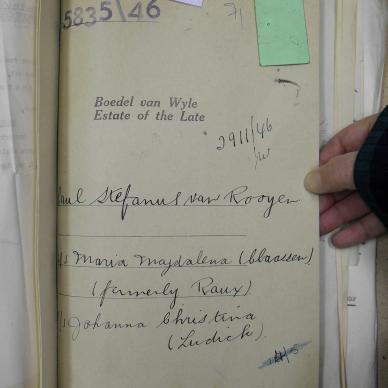 5835\46
71
Boedel van Wyle
Estate of the Late
2911/46
Paul Stefanus van Rooyen
Maria Magdalena (Claassen)
(formerly Raux)
Johanna Christina
(Ludick)